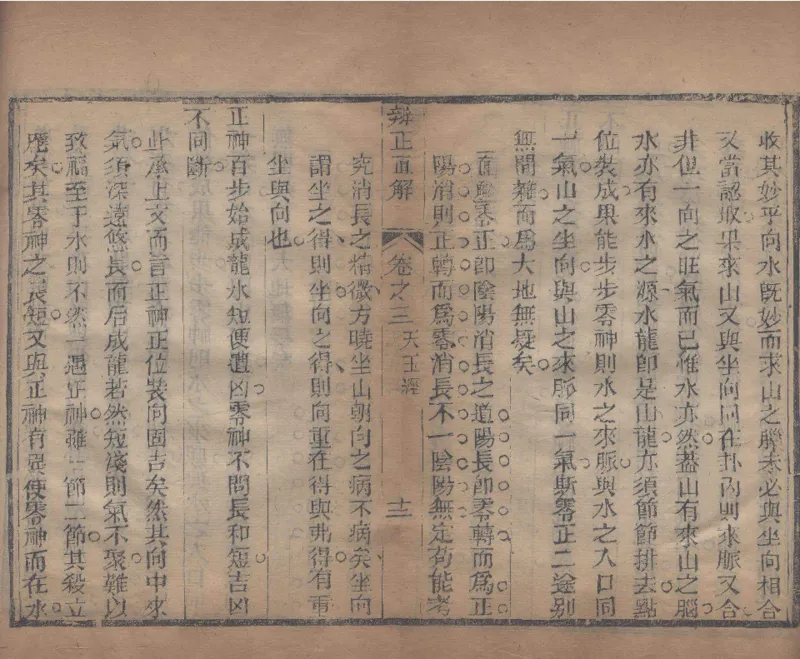 收其妙乎向水既妙而求山之腦未必與坐向相合
又當認取果來山又與坐向同在卦內則來脈又合
非但一向之旺氣而已惟水亦然蓋山有來山之腦
水亦有來水之源水龍即是山龍亦須節節排去點
位裝成果能步步零神則水之來脈與水之入口同
一氣山之坐向與山之來脈同一氣斯零正二途別
無間雜而爲大地無疑矣
直觧零正即陰陽消長之道陽長即零轉而爲正
陽消則正轉而爲零消長不一陰陽無定苟能考
辨正直解 卷之三 天玉經 十二
究消長之精微方曉坐山朝向之病不病矣坐向
謂坐之得則坐向之得則向重在得與弗得有重
坐與向也
正神百步始成龍水短便遭凶零神不問長和短吉凶
不同斷
此承上文而言正神正位裝向固吉矣然其向中來
氣須深遠悠長而后成龍若然短淺則氣不聚難以
致福至于水則不然一遇正神雖一節二節其殺立
應矣其零神之長短又與正神有異使零神而在水